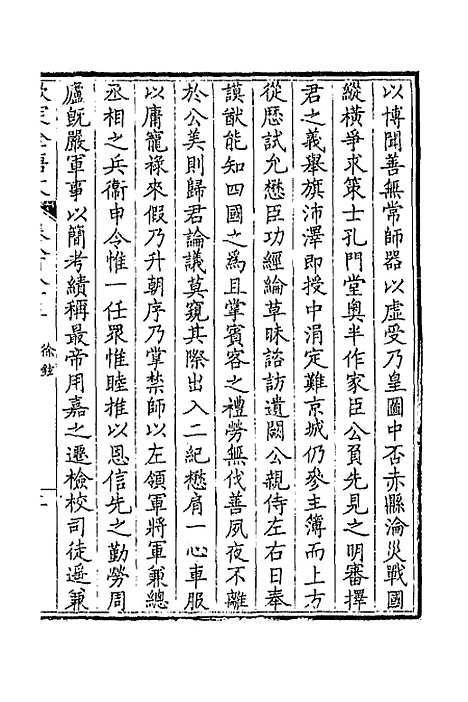 以博聞善無常師器以虚受乃皇圖中否赤縣淪災戰國
縱橫爭求策士孔門堂奥半作家臣公負先見之明審擇
君之義舉旗沛澤即授中涓定難京城仍參主簿而上方
從歷試允懋臣功經綸草昧諮訪遺闕公親侍左右日奉
謨猷能知四國之為且掌賓客之禮勞無伐善夙夜不離
於公美則歸君論議莫窺其際出入二紀懋肩一心車服
以庸寵祿來假乃升朝序乃掌禁師以左領軍將軍兼總
丞相之兵衞申令惟一任眾惟睦推以恩信先之勤勞周
廬旣嚴軍事以簡考績稱最帝用嘉之遷檢校司徒遥兼
欽定全唐文
徐鉉